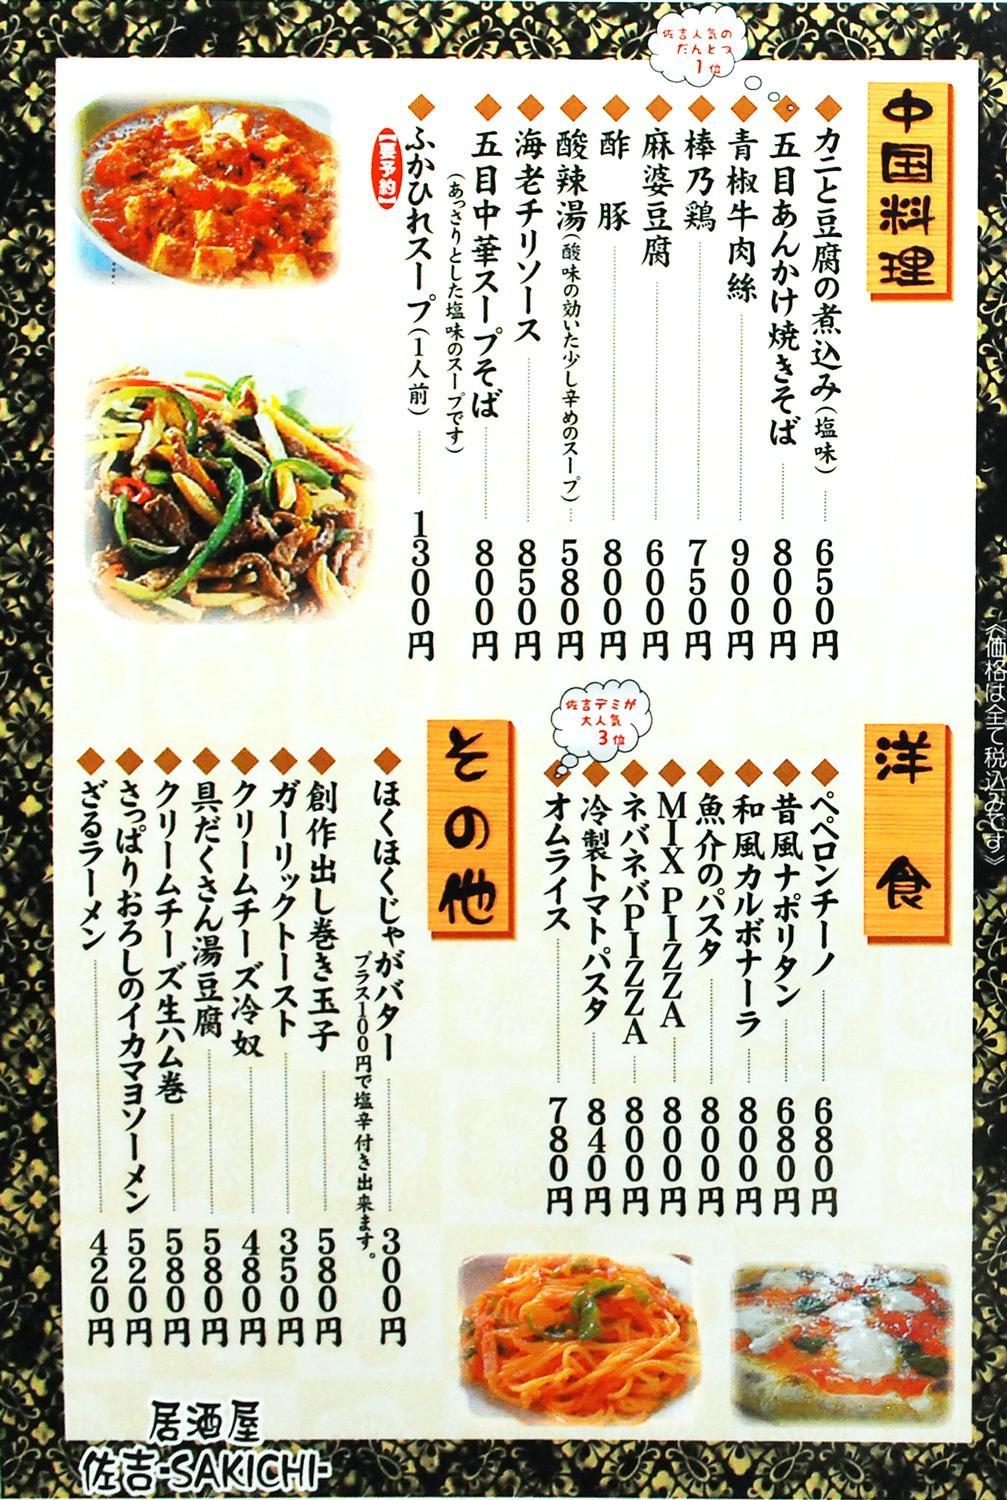 中国料理
佐吉人気の
だんとつ
1位
カニと豆腐の煮込み(塩味) 650円
五目あんかけ焼きそば 800円
青椒牛肉絲 900円
棒乃鶏 750円
麻婆豆腐 600円
酢豚 800円
酸辣湯(酸味の効いた少し辛めのスープ) 580円
海老チリソース 850円
五目中華スープそば 800円
(あっさりとした塩味のスープです)
ふかひれスープ(1人前) 1300円
【要予約】
《価格は全て税込みです》
洋食
ペペロンチーノ 680円
昔風ナポリタン 680円
和風カルボナーラ 800円
魚介のパスタ 800円
MIX PIZZA 800円
ネバネバPIZZA 800円
冷製トマトパスタ 840円
オムライス 780円
佐吉デミが
大人気
3位
その他
ほくほくじゃがバター 300円
プラス100円で塩辛付き出来ます。
創作出し巻き玉子 580円
ガーリックトースト 350円
クリームチーズ冷奴 480円
具だくさん湯豆腐 580円
クリームチーズ生ハム巻 580円
さっぱりおろしのイカマヨソーメン 520円
ざるラーメン 420円
居酒屋
佐吉-SAKICHI-